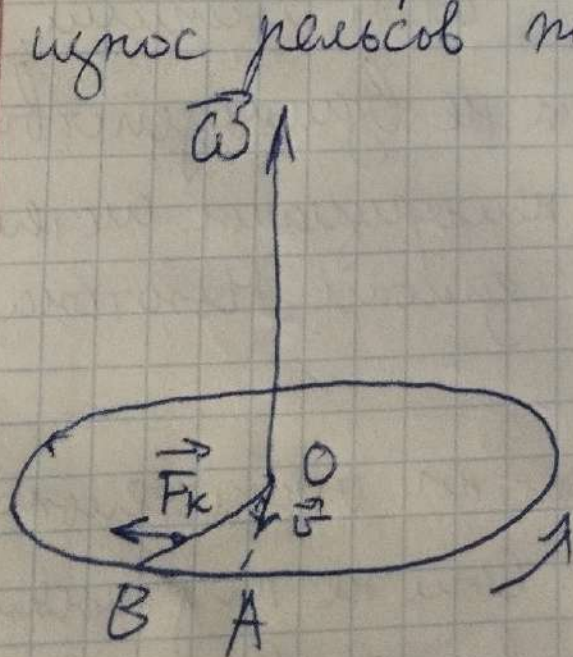 износ рельсов
ω
O
Fк
v
B A